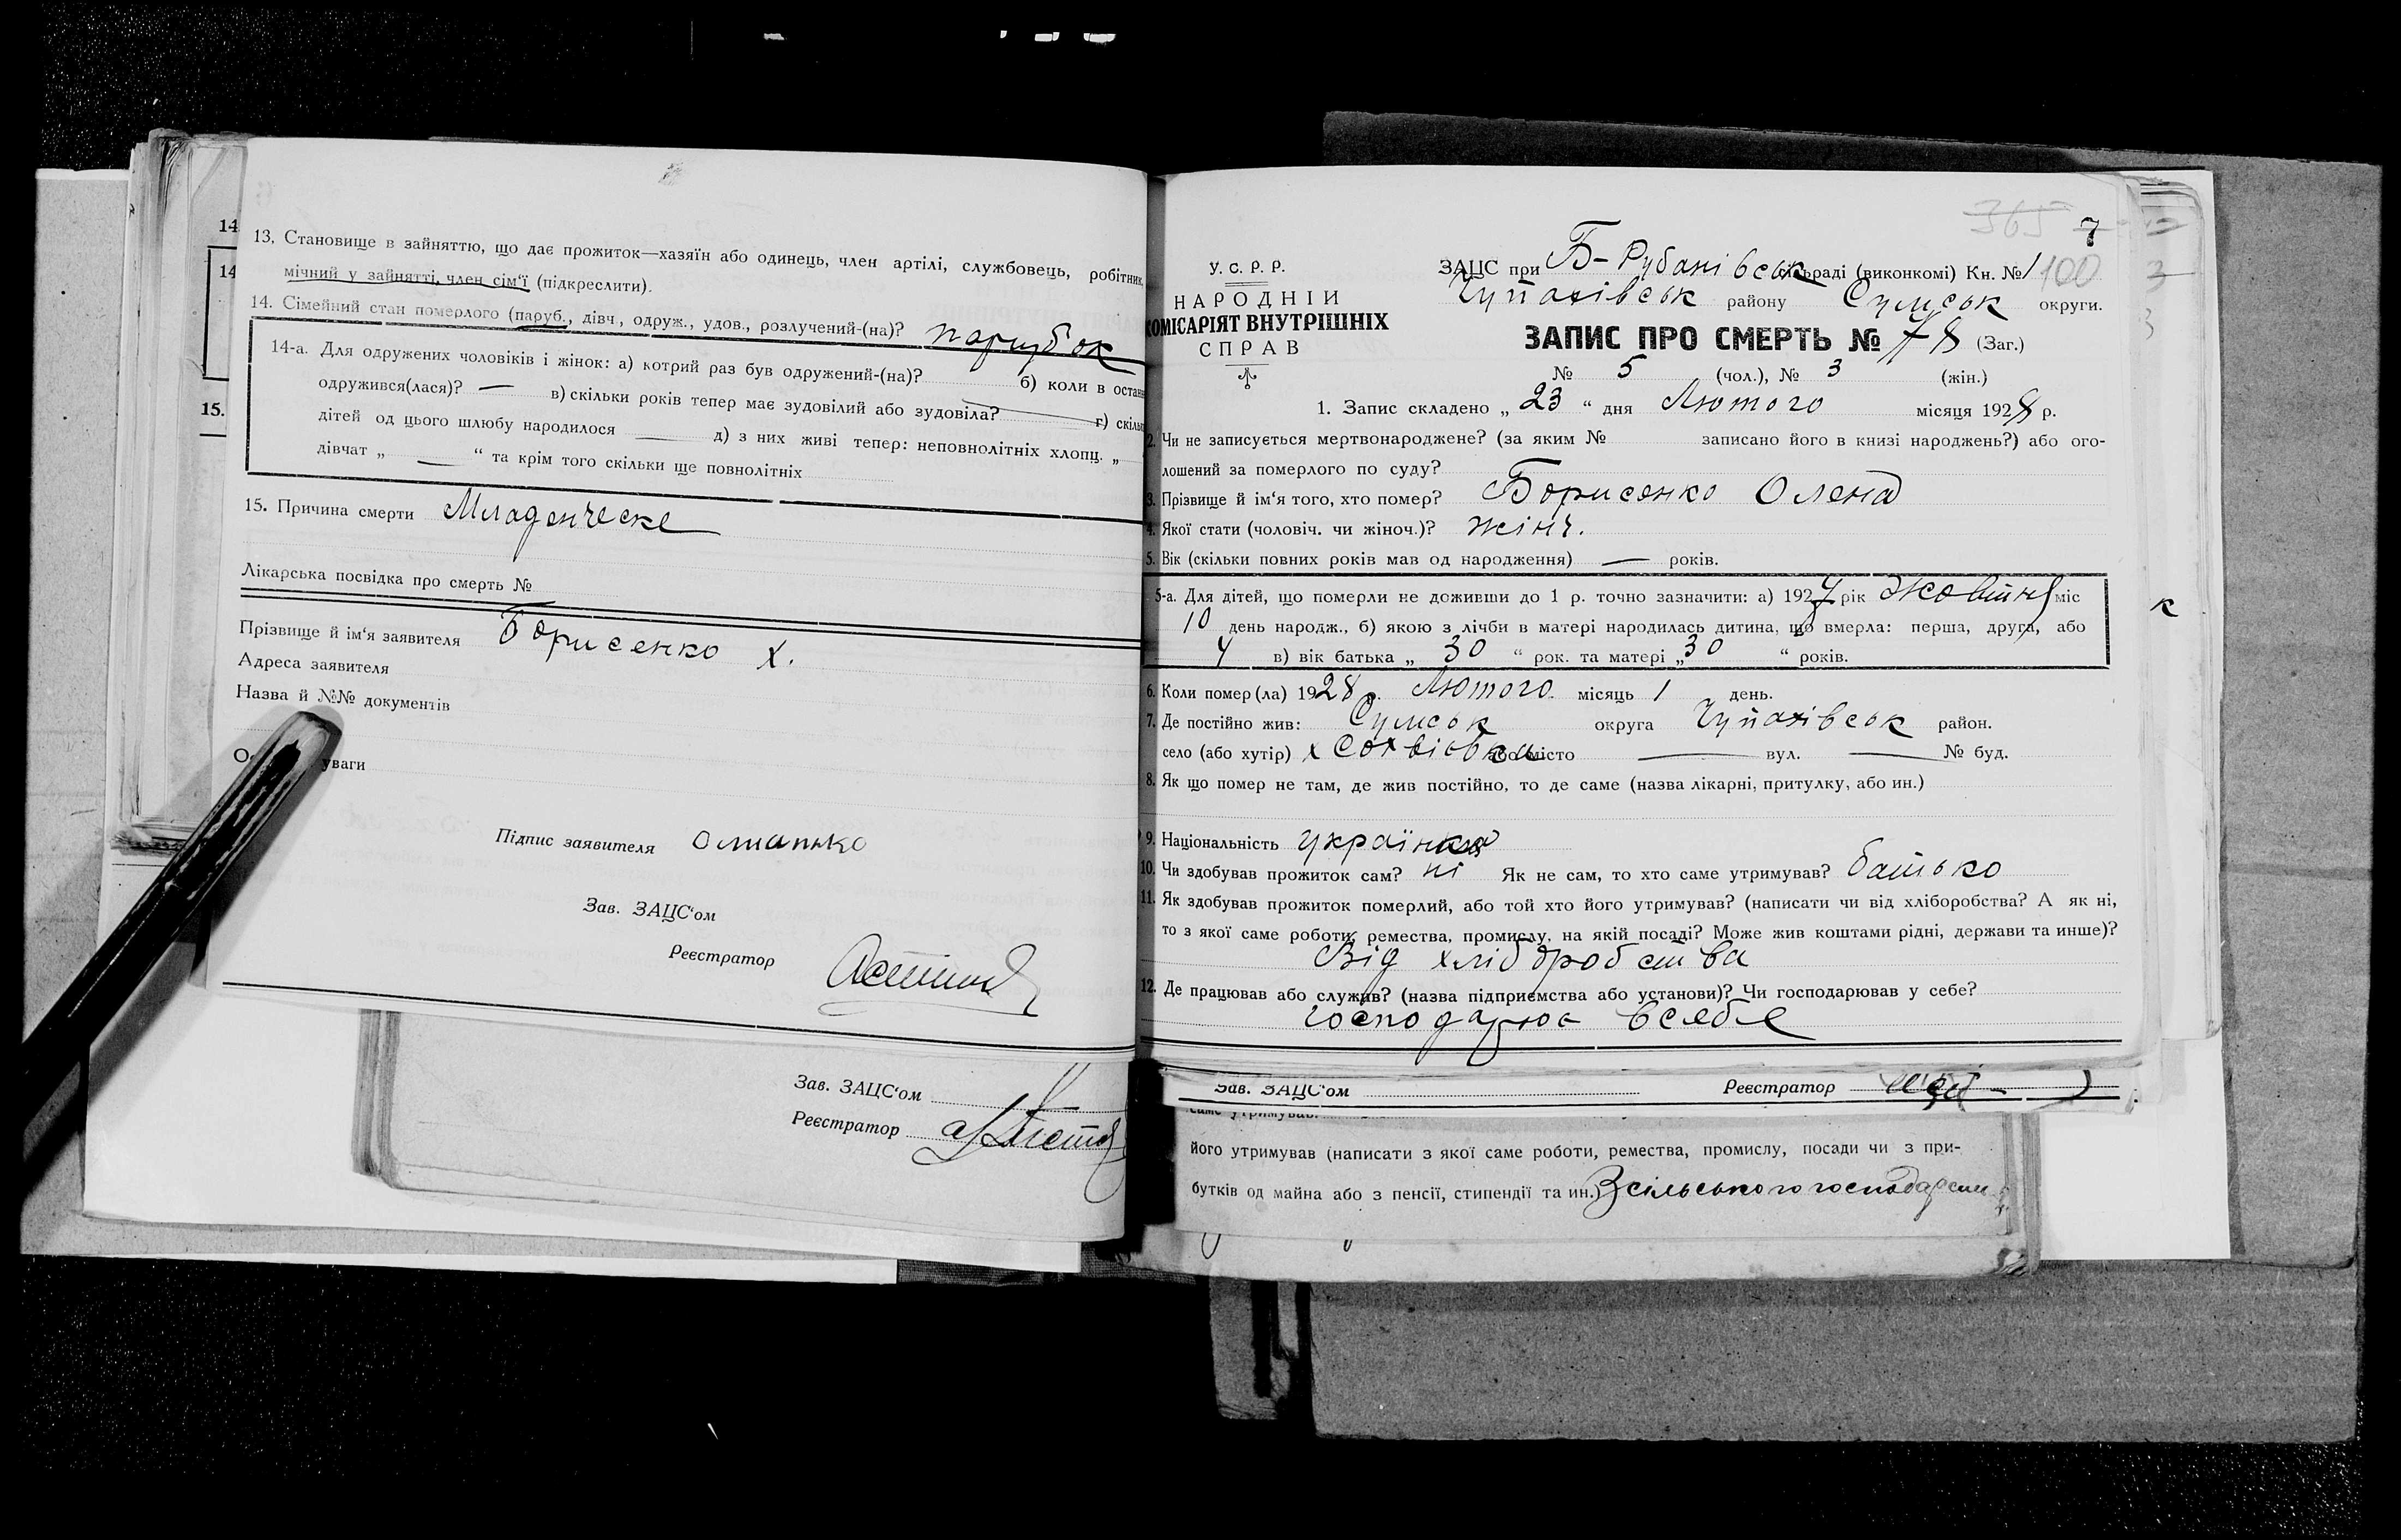 14
14
15.
13. Становище в зайняттю, що дає прожиток—хазяїн або одинець, член артілі, службовець, робітник,
мічний у зайнятті, член сім'ї (підкреслити).
14. Сімейний стан померлого (паруб., дівч., одруж., удов., розлучений-(на)? парубок
14-а. Для одружених чоловіків і жінок: а) котрий раз був одружений-(на)? б) коли в останн
одружився(лася)? — в) скільки років тепер має зудовілий або зудовіла? г) скільк
дітей од цього шлюбу народилося — д) з них живі тепер: неповнолітніх хлопц. „
дівчат „ — “ та крім того скільки ще повнолітніх
15. Причина смерти Младенческе
Лікарська посвідка про смерть №
Прізвище й ім'я заявителя Борисенко Х.
Адреса заявителя
Назва й №№ документів
Ос уваги
Підпис заявителя
Зав. ЗАЦС'ом
Реєстратор
Зав. ЗАЦС'ом
Реєстратор
365 7
У. С. Р. Р.
НАРОДНІЙ
КОМІСАРІЯТ ВНУТРІШНІХ
СПРАВ
ЗАЦС при Б-Рубанівськ сільраді (виконкомі) Кн. № 1 100
Чупахівськ району Сумськ округи.
ЗАПИС ПРО СМЕРТЬ № 8 (Заг.)
№ 5 (чол.), № 3 (жін.)
1. Запис складено „ 23 “ дня Лютого місяця 1928 р.
2. Чи не записується мертвонароджене? (за яким № записано його в книзі народжень?) або ого-
лошений за померлого по суду?
3. Прізвище й ім'я того, хто помер? Борисенко Олена
4. Якої стати (чоловіч. чи жіноч.)? жіноч.
5. Вік (скільки повних років мав од народження) — років.
5-а. Для дітей, що померли не доживши до 1 р. точно зазначити: а) 1927 рік Жовтня міс
10 день народж., б) якою з лічби в матері народилась дитина, що вмерла: перша, друга, або
4 в) вік батька „ 30 “ рок. та матері „ 30 “ років.
6. Коли помер(ла) 1928 р. Лютого місяць 1 день.
7. Де постійно жив: Сумськ округа Чупахівськ район.
село (або хутір) х або місто — вул. — № буд.
8. Як що помер не там, де жив постійно, то де саме (назва лікарні, притулку, або ин.)
9. Національність українка
10. Чи здобував прожиток сам? ні Як не сам, то хто саме утримував? батько
11. Як здобував прожиток померлий, або той хто його утримував? (написати чи від хліборобства? А як ні,
то з якої саме роботи, ремества, промислу, на якій посаді? Може жив коштами рідні, держави та инше)?
Від хліборобства
12. Де працював або служив? (назва підприємства або установи)? Чи господарював у себе?
господарює всебе
Зав. ЗАЦС'ом Реєстратор
саме утримував.
його утримував (написати з якої саме роботи, ремества, промислу, посади чи з при-
бутків од майна або з пенсії, стипендії та ин.) Зсільського
к